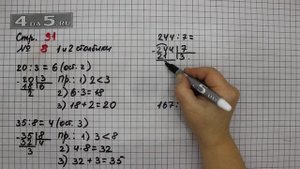 4DO5.RU
Стр. 91
№ 8 1 и 2 столбики
20:3=6 (ост. 2)
20 3
18 6
2
пр.: 1) 2<3
2) 6·3=18
3) 18+2=20
35:8=4 (ост. 3)
35 8
32 4
3
пр.: 1) 3<8
2) 4·8=32
3) 32+3=35
244:7=
244 7
21 3
167: